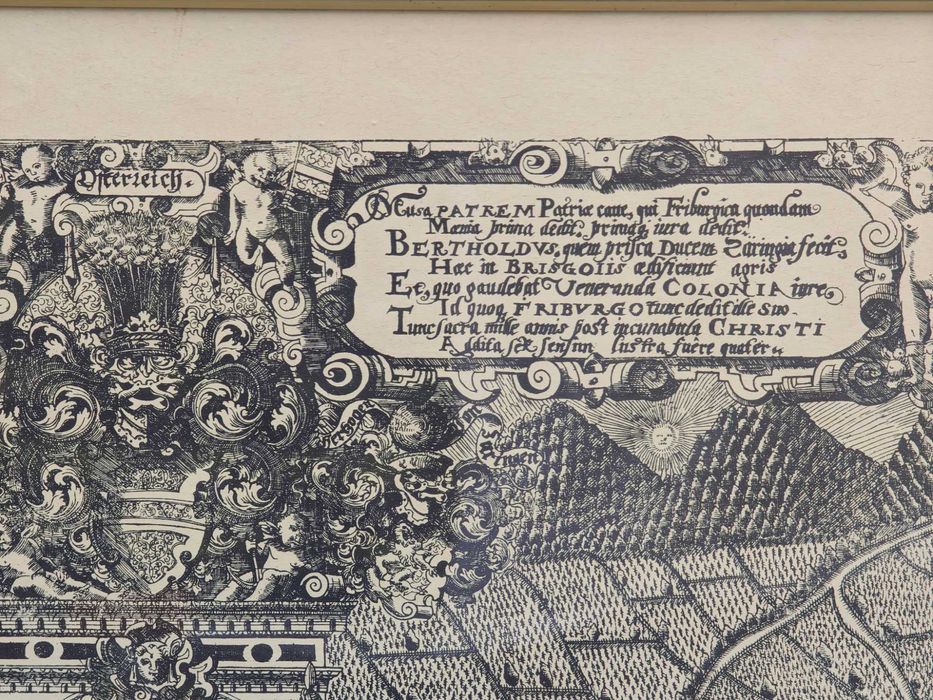 Osterreich.
Musa PATREM Patriæ cane, qui Friburgica quondam
Mænia prima dedit, primaq; iura dedit,
BERTHOLDVS, quem prisca Ducem Zaringia fecit,
Hæc in BRISGOIIS ædificavit agris
Et, quo gaudebat Veneranda COLONIA iure,
Id quoq FRIBVRGO tunc dedit ille suo.
Tunc sacra mille annis post incunabula CHRISTI
Addita sex sensim lustra fuêre quater